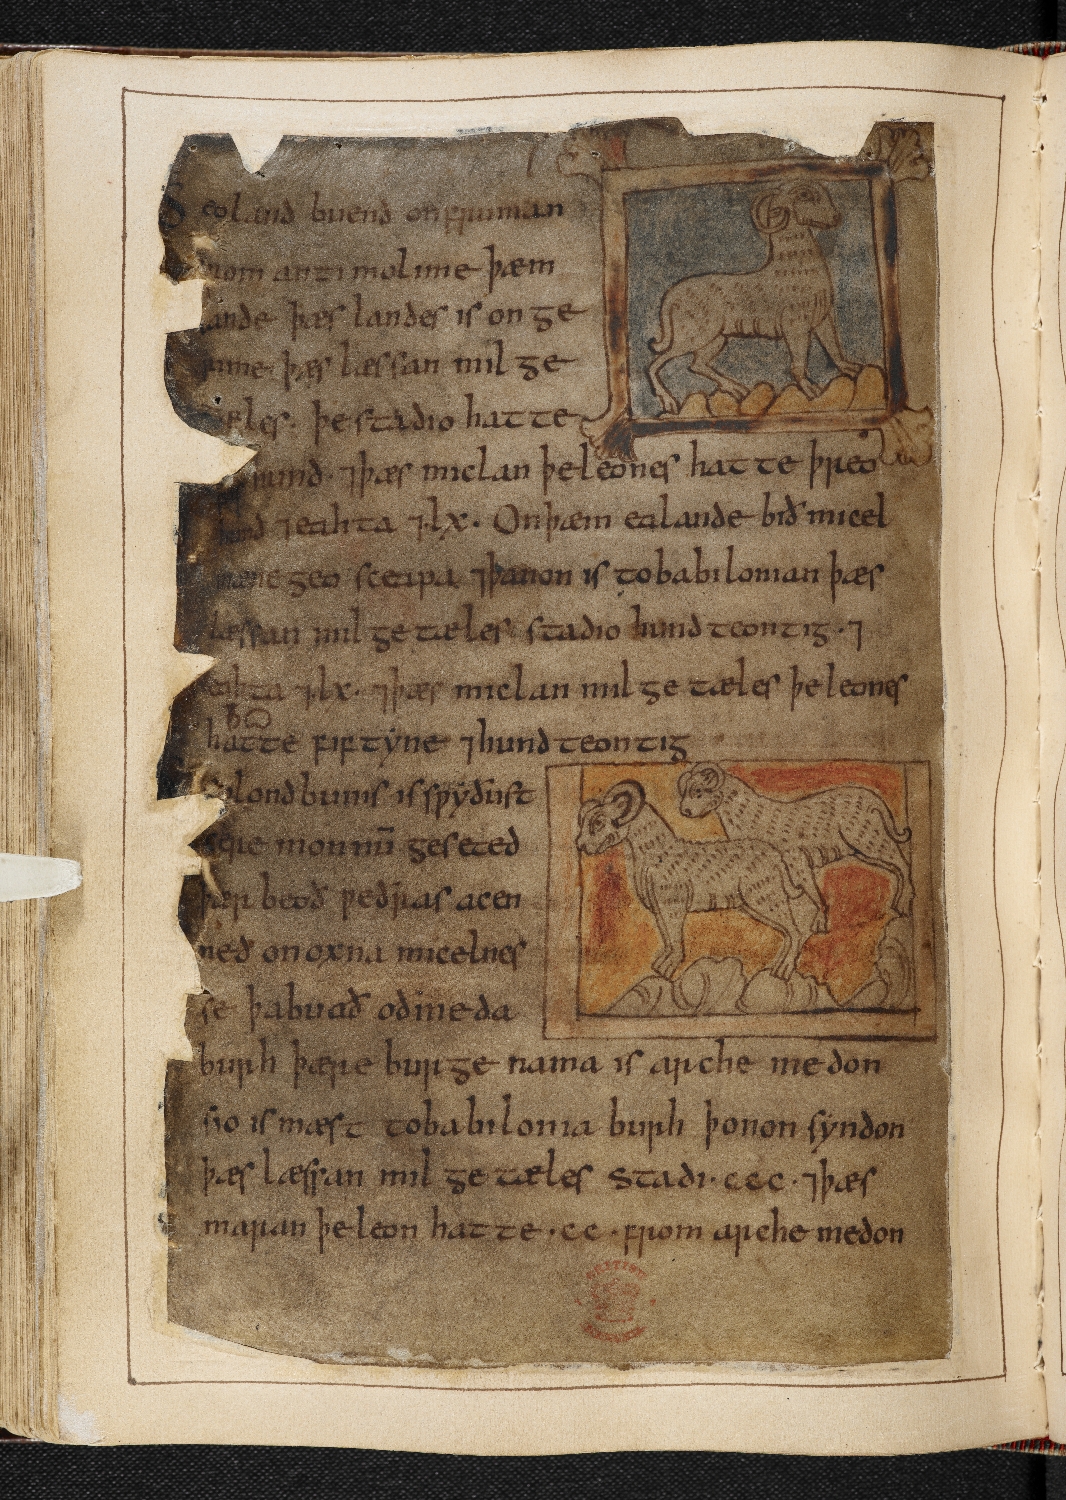 eoland buend on fruman
from antimolime þæm
lande þæs landes is on ge
rime þæs læssan milge
tæles. þe stadio hatte
hund. ⁊ þæs miclan þe leones hatte þreo
hund ⁊ eahta ⁊ .lx. On þæm ealande bið micel
mænegeo sceapa ⁊ þanon is to babilonian þæs
læssan mil getæles stadio hundteontig. ⁊
eahta ⁊ .lx. ⁊ þæs miclan mil getæles þe leones
hatte fiftyne ⁊ hundteontig
londbunis is swyðust
monnū geseted
þær beoð weðras acen
ned on oxna micelnes
se þa buað oð meda
burh þære burge nama is archemedon
sio is mæst to babilonia burh þonon syndon
þæs læssan mil getæles Stadi. ccc. ⁊ þæs
maran þe leon hatte .cc. from archemedon
BRITISH MUSEUM